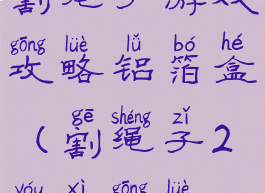 割绳子游戏
gōng lüè lǚ bó hé
攻略铝箔盒
gē shéng zǐ
(割绳子2
yóu xì gōng lüè